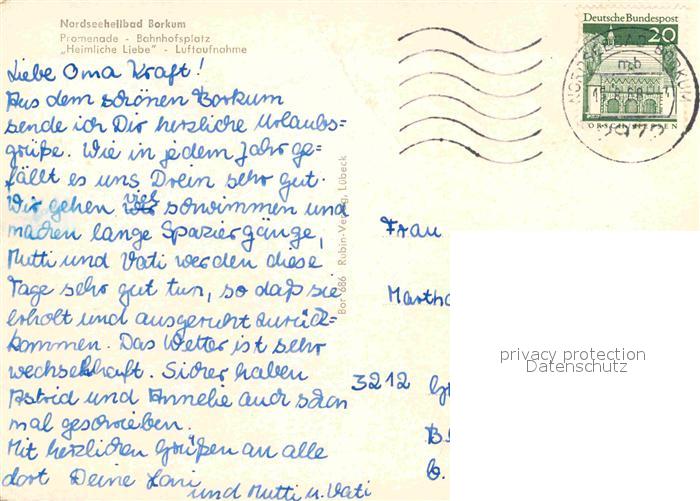 Nordseeheilbad Borkum
Promenade - Bahnhofsplatz
„Heimliche Liebe" - Luftaufnahme
Liebe Oma Kraft!
Aus dem schönen Borkum
sende ich Dir herzliche Urlaubs=
grüße. Wie in jedem Jahr ge=
fällt es uns Drein sehr gut.
Wir gehen viel schwimmen und
machen lange Spaziergänge,
Mutti und Vati werden diese
Tage sehr gut tun, so daß sie
erholt und ausgeruht zurück=
kommen. Das Wetter ist sehr
wechselhaft. Sicher haben
Astrid und Annelie auch schon
mal geschrieben.
Mit herzlichen Grüßen an alle
dort Deine
und Mutti u. Vati
Bor 686 Rubin-Verlag, Lübeck
Deutsche Bundespost
20
NORDSEEBAD BORKUM
Frau
Martha
3212
privacy protection
Datenschutz